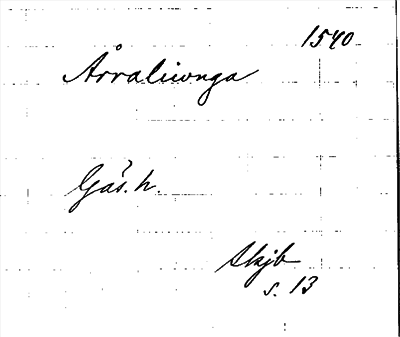 1540
Årraliwnga
Gås. h.
Skjb
s. 13